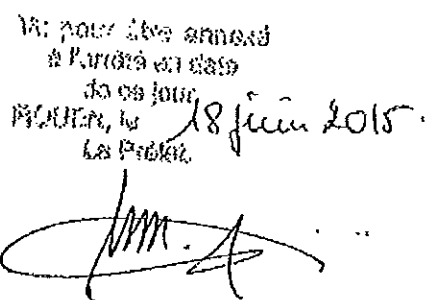 Vu pour être annexé
à l'arrêté en date
de ce jour
ROUEN, le 18 juin 2015.
Le Préfet,